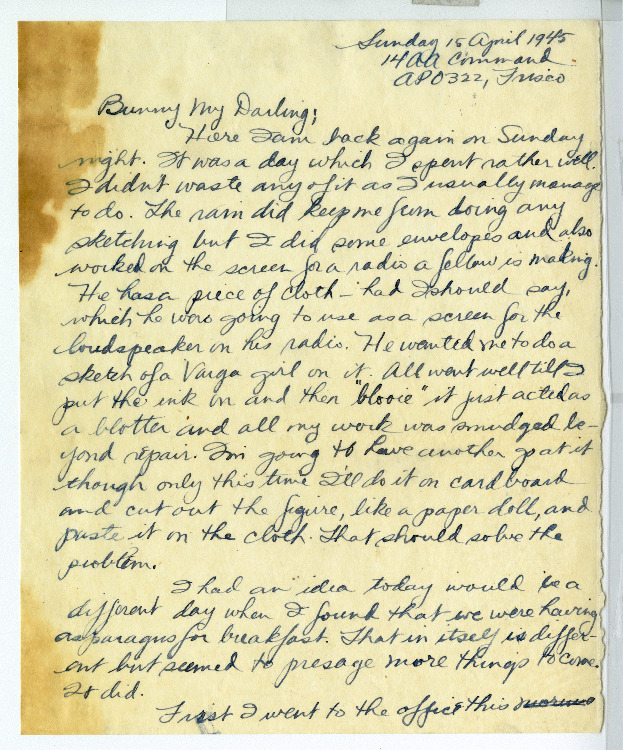 Sunday 15 April 1945
14 AA Command
APO 322, Frisco
Bunny My Darling;
Here I am back again on Sunday
night. It was a day which I spent rather well.
I didn't waste any of it as I usually manage
to do. The rain did keep me from doing any
sketching but I did some envelopes and also
worked on the screen for a radio a fellow is making.
He has a piece of cloth - had I should say,
which he was going to use as a screen for the
loudspeaker on his radio. He wanted me to do a
sketch of a Varga girl on it. All went well till I
put the ink on and then "blooie" it just acted as
a blotter and all my work was smudged be-
yond repair. I'm going to have another go at it
though only this time I'll do it on cardboard
and cut out the figure, like a paper doll, and
paste it on the cloth. That should solve the
problem.
I had an idea today would be a
different day when I found that we were having
asparagus for breakfast. That in itself is differ-
ent but seemed to presage more things to come.
It did.
First I went to the office this